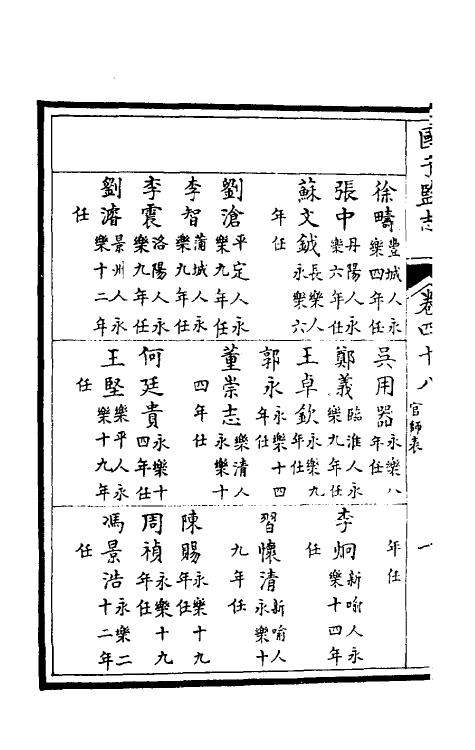 國子監志
卷四十八
官師表
一
徐疇豐城人永樂四年任
張中丹陽人永樂六年任
蘇文鉞長樂人永樂六
年任
劉滄平定人永樂九年任
李智蒲城人永樂九年任
李震洛陽人永樂九年任
劉濬景州人永樂十二年
任
吳用器永樂八年任
鄭義臨淮人永樂九年任
王卓欽永樂九年任
郭永永樂十四年任
董崇志樂清人永樂十
四年任
何廷貴永樂十四年任
王堅樂平人永樂十九年
任
年任
李炯新喻人永樂十四年
任
習懷清新喻人永樂十
九年任
陳賜永樂十九年任
周禎永樂十九年任
馮景浩永樂二十二年
任